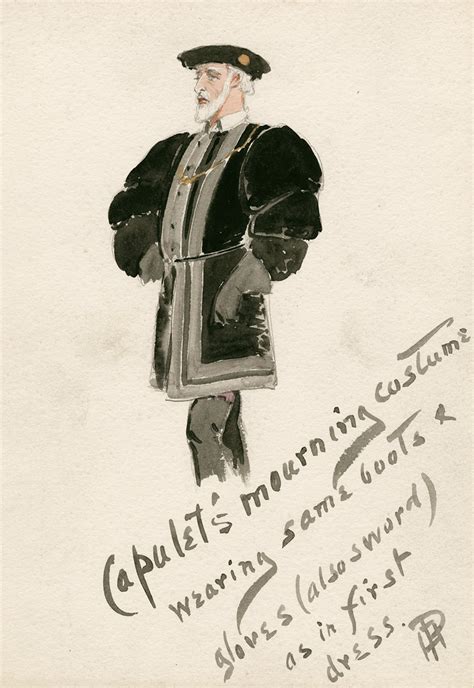 Capulet's mourning costume
wearing same boots &
gloves (also sword)
as in first
dress.